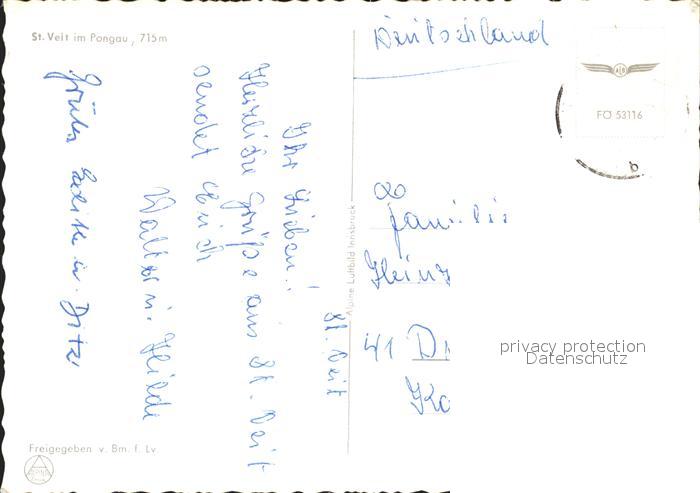 St. Veit im Pongau, 715m
St. Veit
Ihr Lieben!
Herzliche Grüße aus St. Veit
sendet Euch
Walter u. Hilde
Grüße
Freigegeben v. Bm. f. Lv.
Alpine Luftbild Innsbruck
Deutschland
FO 53116
Familie
Heinz
41 D
Ko
privacy protection
Datenschutz